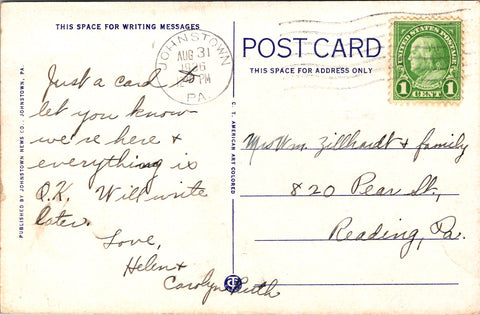 THIS SPACE FOR WRITING MESSAGES
Just a card to
let you know
we're here +
everything is
O.K. Will write
later.
Love,
Helen +
Carolyn Ruth
PUBLISHED BY JOHNSTOWN NEWS CO., JOHNSTOWN, PA.
C. T. AMERICAN ART COLORED
JOHNSTOWN
AUG 31
1926
PM
PA.
POST CARD
THIS SPACE FOR ADDRESS ONLY
UNITED STATES POSTAGE
1 CENT 1
Mrs Wm. Zillhardt + family
820 Pear St,
Reading, Pa.